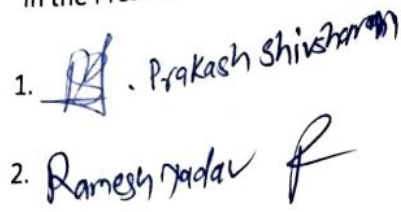 in the
1. . Prakash Shivsharan
2. Ramesh Yadav R